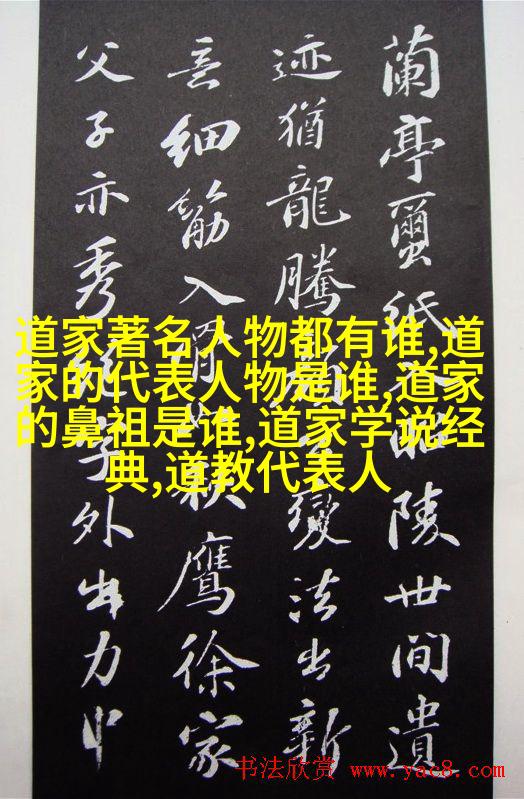 蘭亭繭紙入昭陵世間遺
迹猶龍騰顏公變法出新
意細筋入骨如秋鷹徐家
父子亦秀絕字外出力中
道家著名人物都有谁,道
家的代表人物是谁,道家
的鼻祖是谁,道家学说经
典,道教代表人
书法欣赏 www.yac8.com